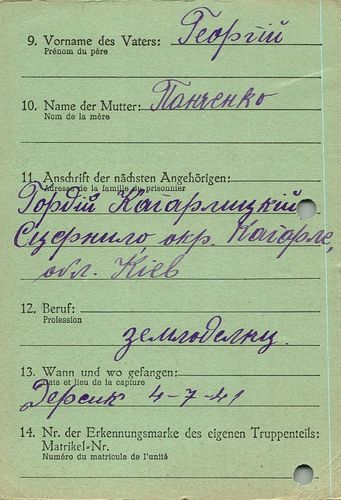 9. Vorname des Vaters: Георгій
Prénom du père
10. Name der Mutter: Панченко
Nom de la mère
11. Anschrift der nächsten Angehörigen:
Adresse de la famille du prisonnier
Гордій Кагарлицкій
окр. Кагарле,
обл. Кіев
12. Beruf:
Profession
землоделец
13. Wann und wo gefangen:
Date et lieu de la capture
4-7-41
14. Nr. der Erkennungsmarke des eigenen Truppenteils:
Matrikel-Nr.
Numéro du matricule de l'unité